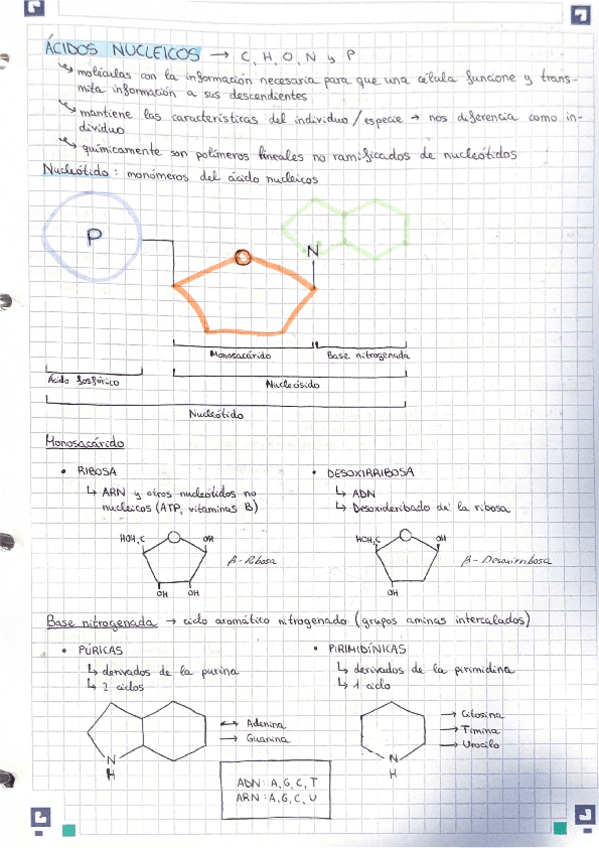 ÁCIDOS NUCLEICOS → C, H, O, N y P
↳ moléculas con la información necesaria para que una célula funcione y trans-
mita información a sus descendientes
↳ mantiene las características del individuo/especie → nos diferencia como in-
dividuo
↳ químicamente son polímeros lineales no ramificados de nucleótidos
Nucleótido: monómeros del ácido nucleicos
P
N
Monosacárido
Base nitrogenada
Ácido fosfórico
Nucleósido
Nucleótido
Monosacárido
• RIBOSA
↳ ARN y otros nucleótidos no
nucleicos (ATP, vitaminas B)
HOH₂C
OH
β-Ribosa
OH
OH
• DESOXIRRIBOSA
↳ ADN
↳ Desoxideribado de la ribosa
HOH₂C
OH
β-Desoxirribosa
OH
Base nitrogenada → ciclo aromático nitrogenado (grupos aminas intercalados)
• PÚRICAS
↳ derivados de la purina
↳ 2 ciclos
→ Adenina
→ Guanina
N
H
• PIRIMIDÍNICAS
↳ derivados de la pirimidina
↳ 1 ciclo
→ Citosina
→ Timina
→ Uracilo
N
H
ADN: A, G, C, T
ARN: A, G, C, U